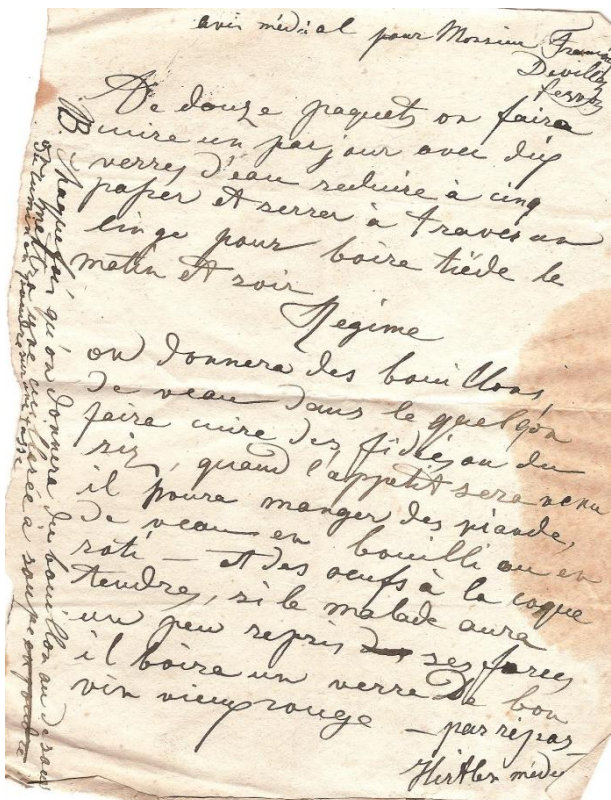 avis médial pour Monsieur
Devilly
De douze paquets on faira
cuire un par jour avec dix
verres d'eau reduire à cinq
passer et serrer à travers un
linge pour boire tiéde le
matin et soir
Régime
on donnera des bouillons,
de veau dans le quel on
faire cuire des fidés ou du
riz, quand l'appetit sera venu
il poura manger des viande,
de veau en bouilli ou en
roti — et des oeufs à la coque
tendres, si le malade aura
un peu repris ses forces
il boira un verre de bon
vin vieux rouge — par répas —
médec
NB Chaque fois qu'on donnera du bouillon ou de sou
on mettra une cuillerée à soupe